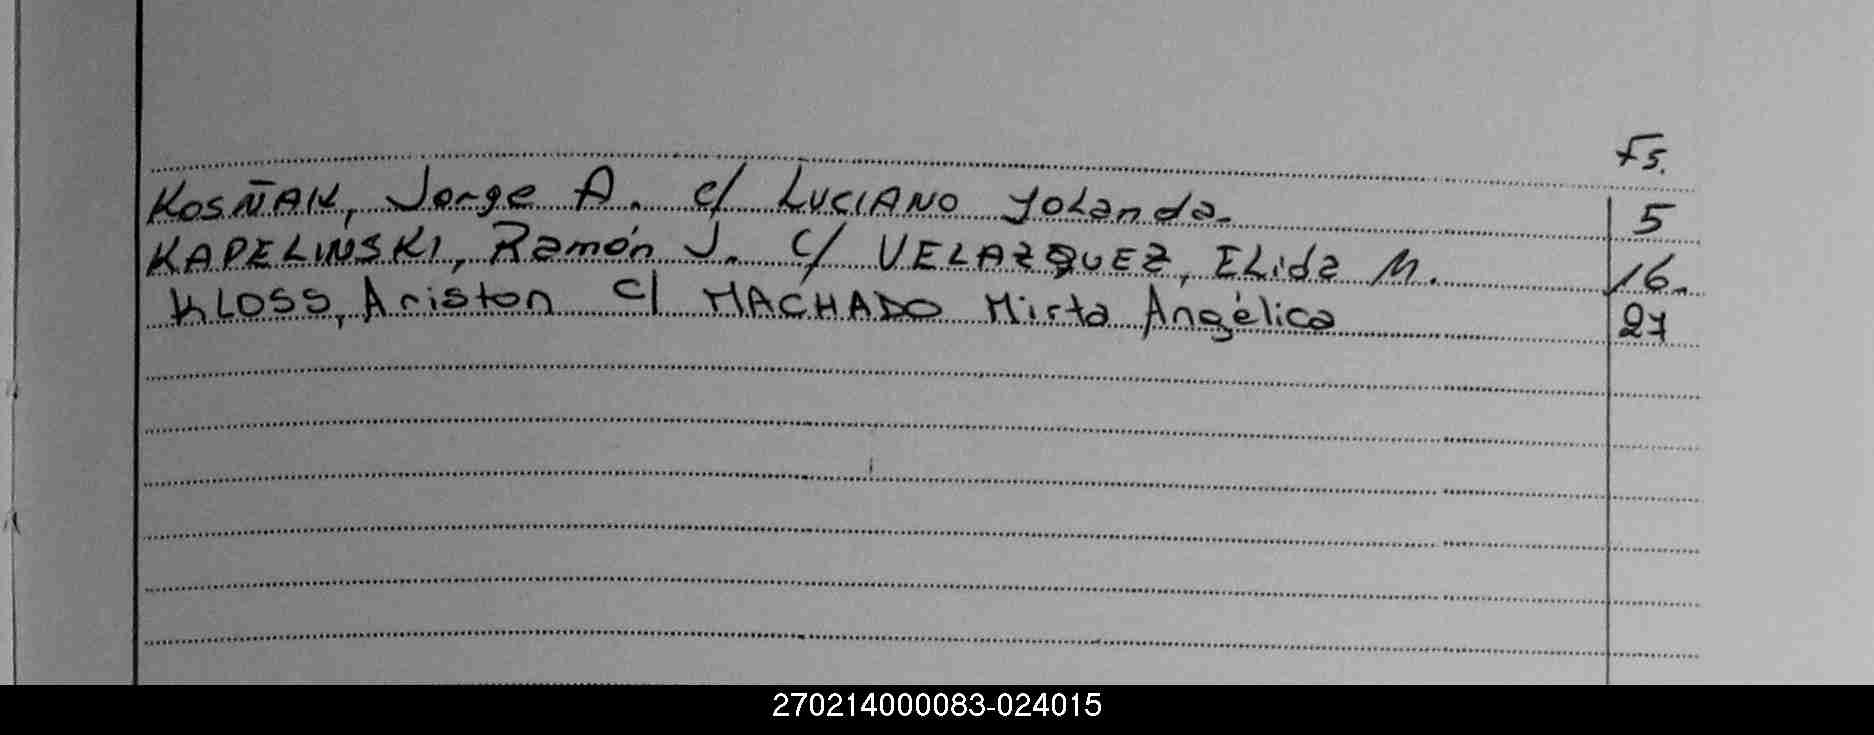 Fs.
KOSÑAK, Jorge A. c/ LUCIANO Yolanda. 5
KAPELINSKI, Ramón J. c/ VELAZQUEZ, Elida M. 16.
KLOSS, Ariston c/ MACHADO Mirta Angélica 27
270214000083-024015